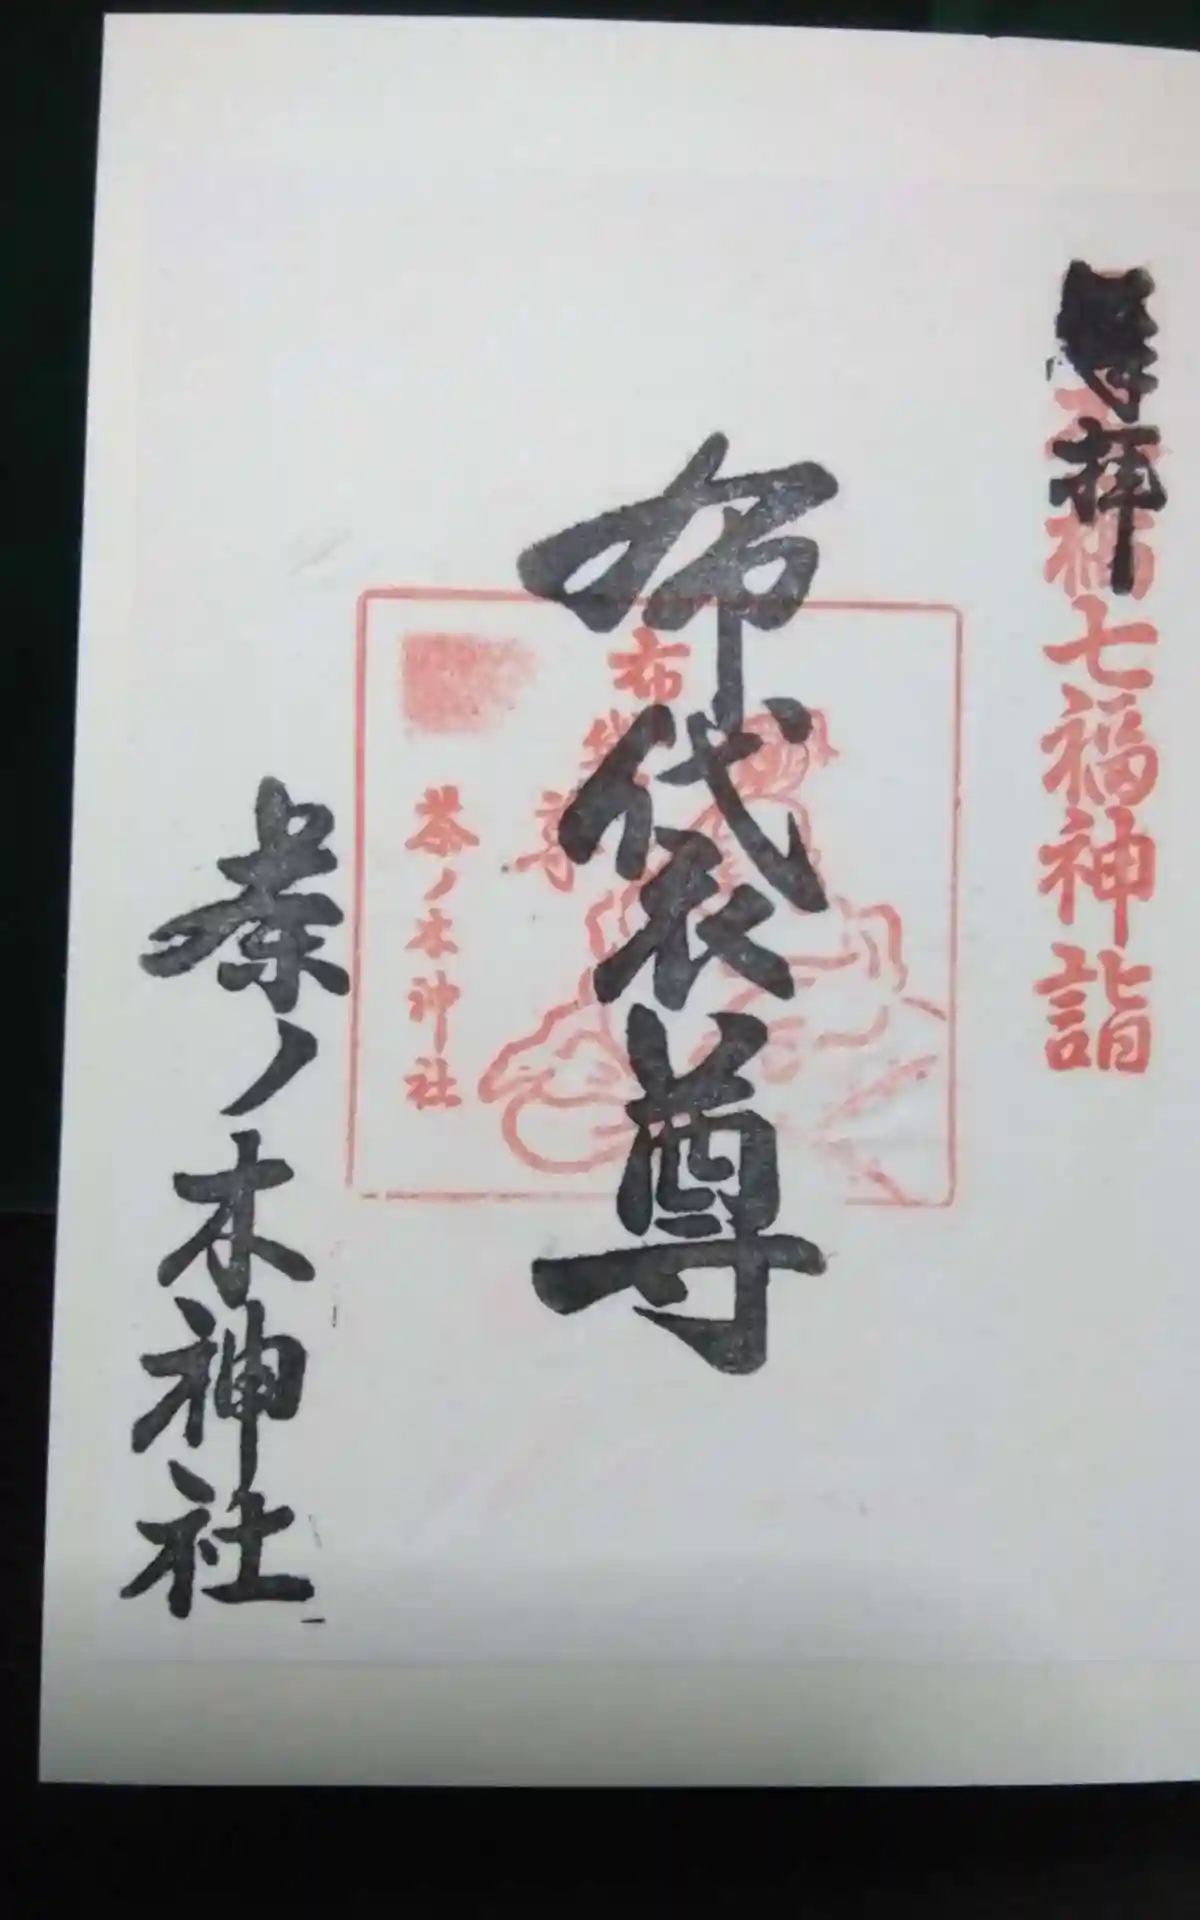 奉拝
福七福神詣
布袋尊
布袋尊
茶ノ木神社
茶ノ木神社